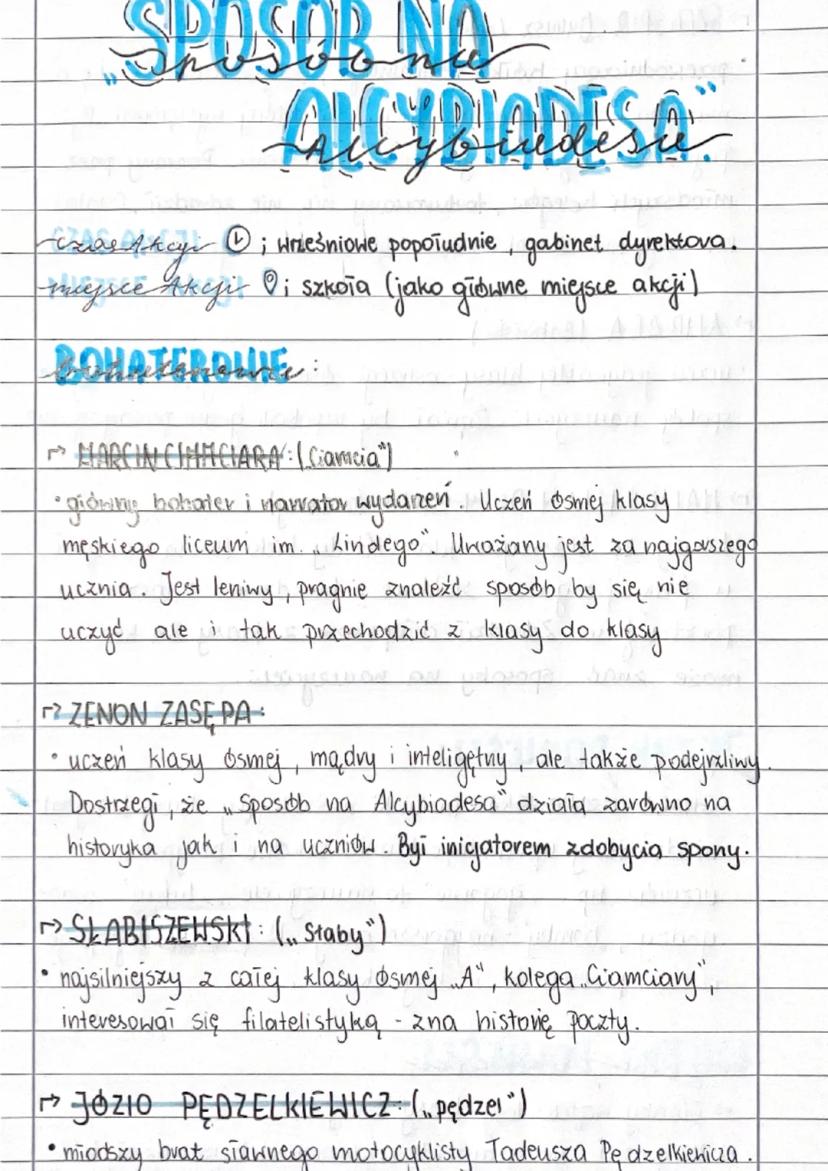 „SPOSÓB NA
sposób na
ALCYBIADESA"
Alcybiadesa
czas Akcji ; wrześniowe popołudnie, gabinet dyrektora.
miejsce Akcji ; szkoła (jako główne miejsce akcji)
BOHATEROWIE
bohaterowie:
↱ MARCIN CIAMCIARA: („Ciamcia")
• główny bohater i narrator wydarzeń. Uczeń ósmej klasy
męskiego liceum im. „Lindego". Uważany jest za najgorszego
ucznia. Jest leniwy, pragnie znaleźć sposób by się nie
uczyć ale i tak przechodzić z klasy do klasy
↱ ZENON ZASĘPA:
• uczeń klasy ósmej, mądry i inteligętny, ale także podejrzliwy.
Dostrzegł, że „Sposób na Alcybiadesa" działa zarówno na
historyka jak i na uczniów. Był inicjatorem zdobycia spony.
↱ SŁABISZEWSKI: („Słaby")
• najsilniejszy z całej klasy ósmej „A", kolega „Ciamciary",
interesował się filatelistyką - zna historię poczty.
↱ JÓZIO PĘDZELKIEWICZ: („pędzel")
• młodszy brat sławnego motocyklisty Tadeusza Pędzelkiewicza.